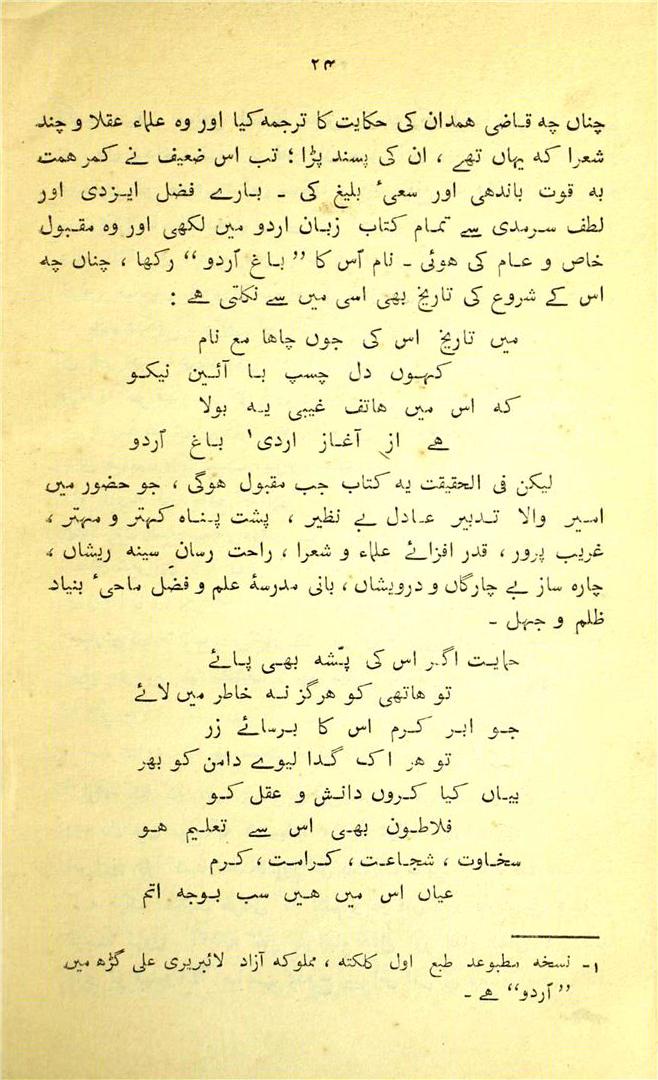 ۲۴
چناں چہ قاضی ھمدان کی حکایت کا ترجمہ کیا اور وہ علماء عقلا و چند
شعرا کہ یہاں تھے ، ان کی پسند پڑا ؛ تب اس ضعیف نے کمر ھمت
بہ قوت باندھی اور سعیٔ بلیغ کی ۔ بارے فضل ایزدی اور
لطف سرمدی سے تمام کتاب زبان اردو میں لکھی اور وہ مقبول
خاص و عام کی ھوئی ۔ نام اُس کا ”باغ اُردو“ رکھا ، چناں چہ
اس کے شروع کی تاریخ بھی اسی میں سے نکلتی ھے :
میں تاریخ اس کی جوں چاھا مع نام
کہوں دل چسپ با آئین نیکو
کہ اس میں ھاتف غیبی یہ بولا
ھے از آغاز اردی۱ باغ اُردو
لیکن فی الحقیقت یہ کتاب جب مقبول ھوگی ، جو حضور میں
امیر والا تدبیر عادل بے نظیر ، پشت پناہ کہتر و مہتر ،
غریب پرور ، قدر افزائے علماء و شعرا ، راحت رسانِ سینہ ریشاں ،
چارہ ساز بے چارگاں و درویشاں ، بانی مدرسۂ علم و فضل ماحیٔ بنیاد
ظلم و جہل ۔
حمایت اگر اس کی پشّہ بھی پائے
تو ھاتھی کو ھرگز نہ خاطر میں لائے
جو ابر کرم اس کا برسائے زر
تو ھر اک گدا لیوے دامن کو بھر
بیاں کیا کروں دانش و عقل کو
فلاطون بھی اس سے تعلیم ھو
سخاوت ، شجاعت ، کرامت ، کرم
عیاں اس میں ھیں سب بوجہ اتم
۱- نسخہ مطبوعہ طبع اول کلکتہ ، مملوکہ آزاد لائبریری علی گڑھ میں
”اُردو“ ھے ۔